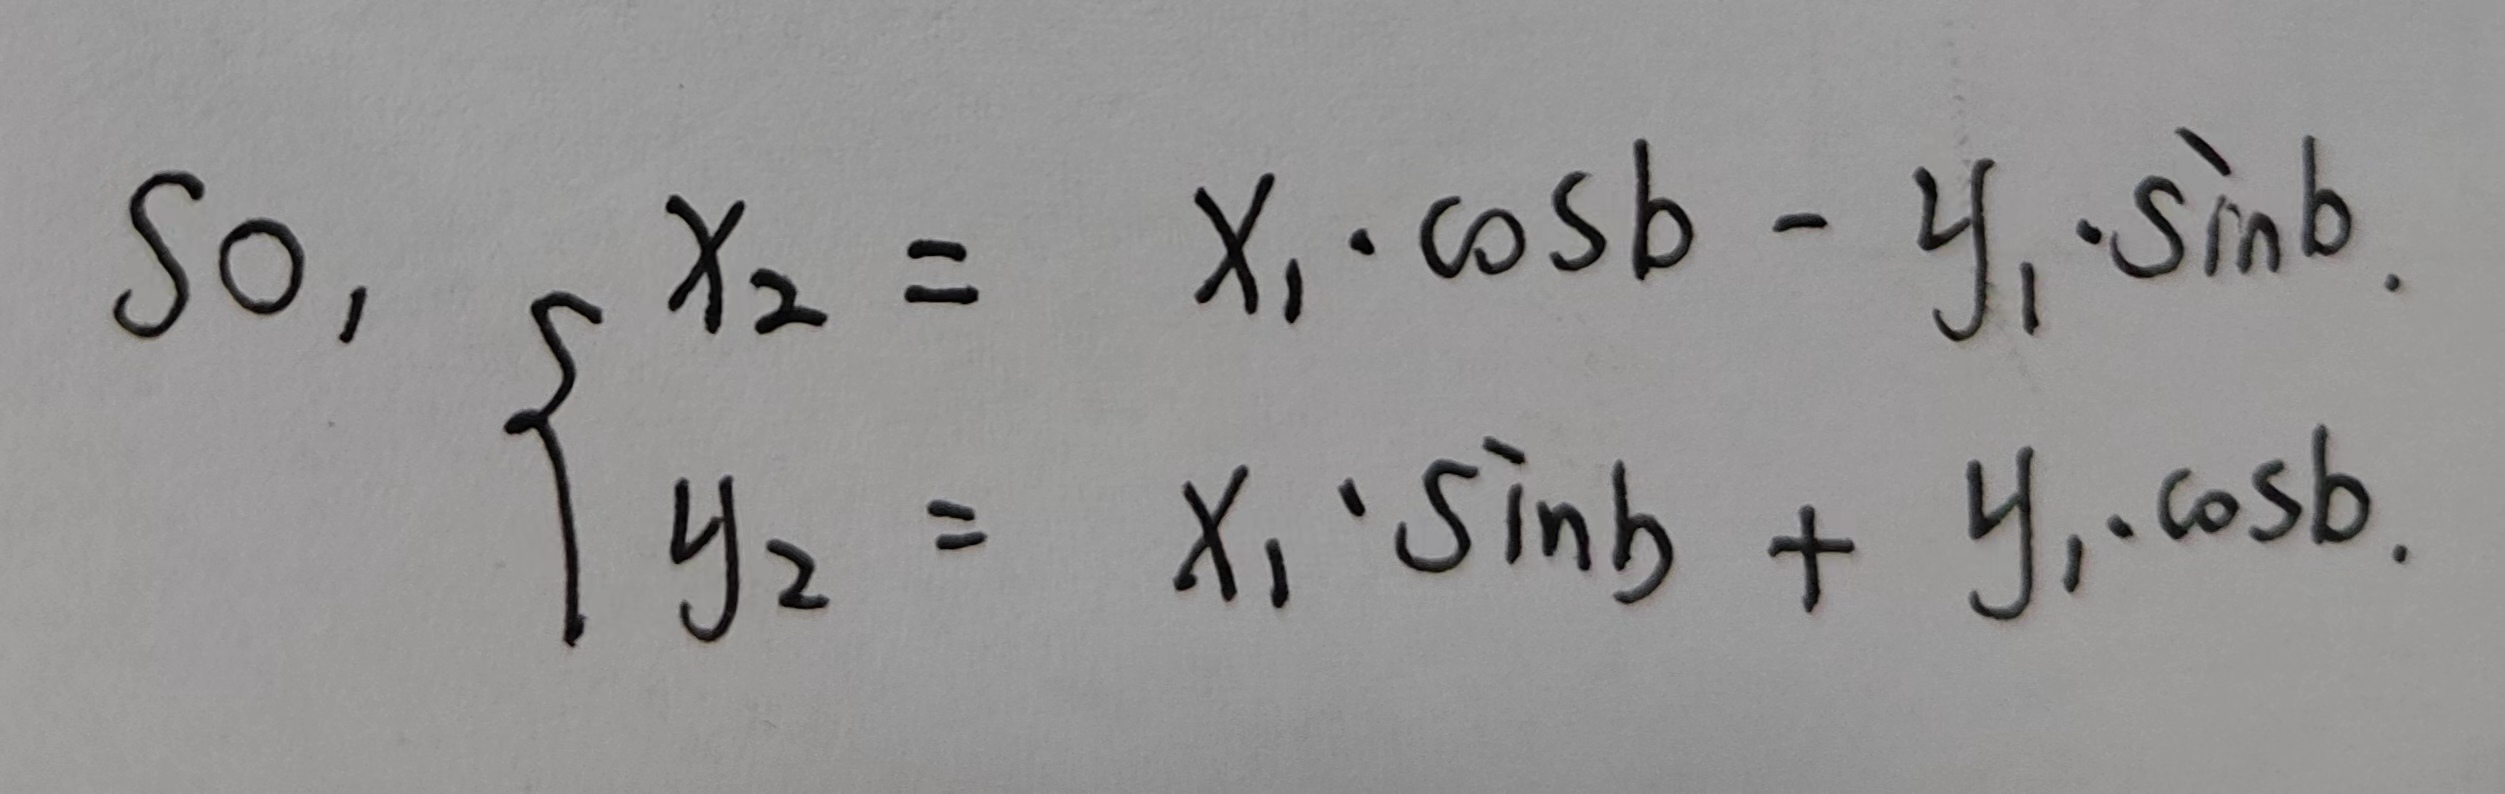 So, { x₂ = x₁ · cosb - y₁ · sinb.
y₂ = x₁ · sinb + y₁ · cosb.